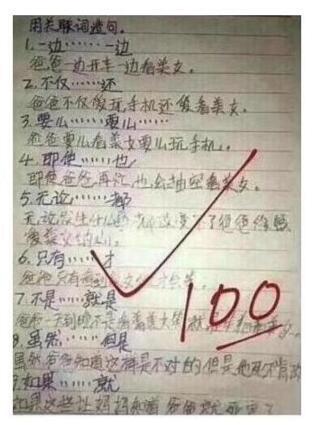 用关联词造句。
1.一边……一边
爸爸一边开车一边看美女。
2.不仅……还
爸爸不仅爱玩手机还爱看美女。
3.要么……要么……
爸爸要么看美女要么玩手机。
4.即使……也
即使爸爸再忙,也会抽空看美女。
5.无论……都
无论发生什么都改变不了爸爸
爱美女的心。
6.只有……才
爸爸只有看到美女才会笑。
7.不是……就是
爸爸一天到晚不是看美女
8.虽然……但是
虽然爸爸知道这样是不对的但是他
9.如果……就
如果这些让妈妈知道爸爸就死定了
100